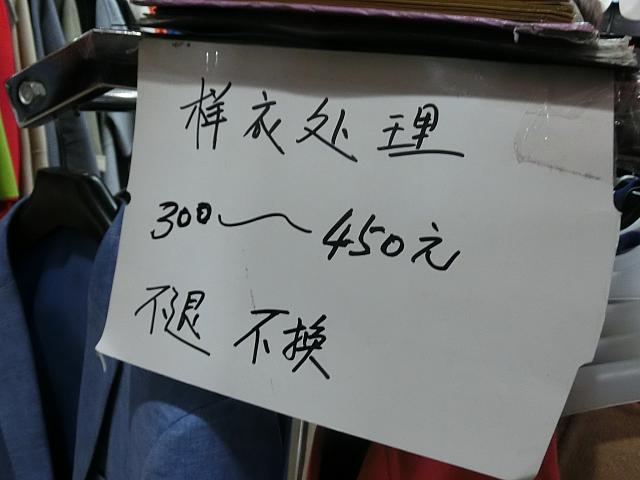 样衣处理
300~450元
不退 不换